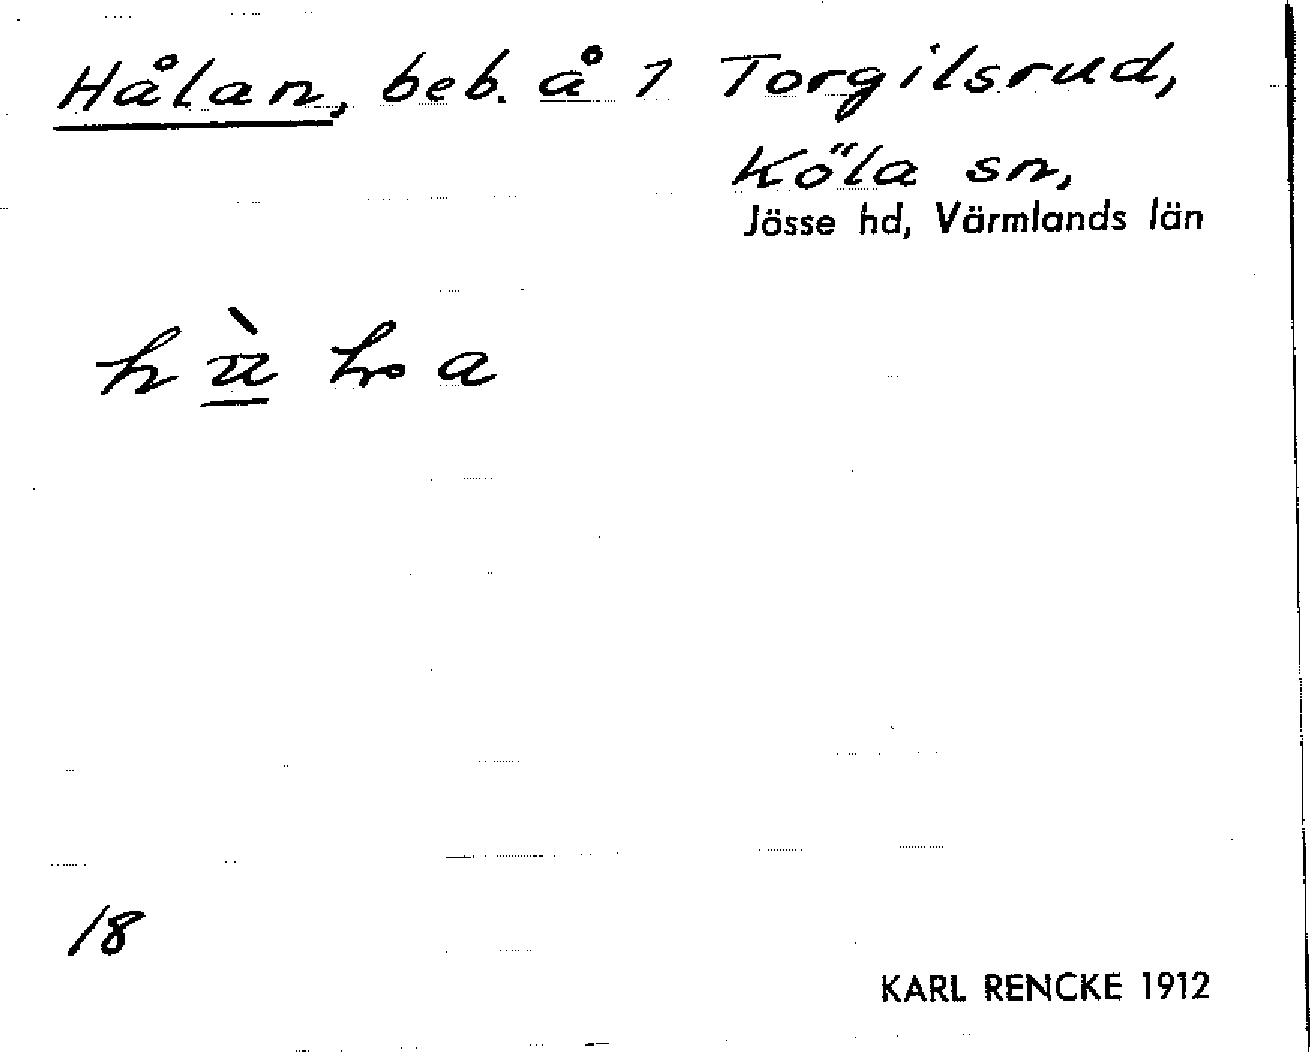 Hålan, beb. å 1 Torgilsrud,
Köla sn,
Jösse hd, Värmlands län
18
KARL RENCKE 1912